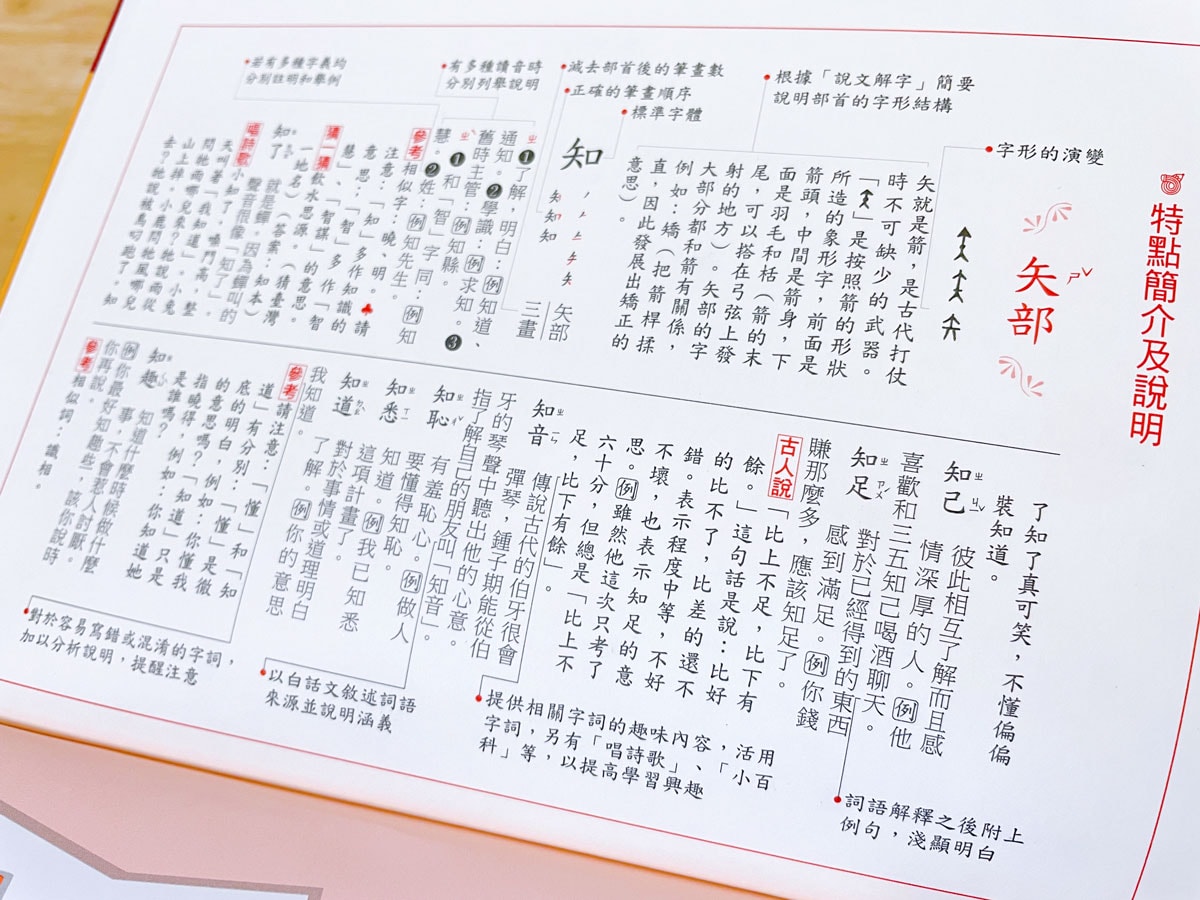 特點簡介及說明
矢部
ㄕˇ
字形的演變
根據「說文解字」簡要
說明部首的字形結構
標準字體
正確的筆畫順序
減去部首後的筆畫數
有多種讀音時
分別列舉說明
若有多種字義均
分別註明和舉例
矢就是箭，是古代打仗
時不可缺少的武器。
「」是按照箭的形狀
所造的象形字，前面是
箭頭，中間是箭身，下
面是羽毛和栝（箭的末
尾，可以搭在弓弦上發
射的地方）。矢部的字
大部分都和箭有關係，
例如：矯（把箭桿揉
直，因此發展出矯正的
意思）。
矢部
三畫
知
ㄓ❶了解，明白：例知道、
通知。❷學識：例求知。❸
舊時主管：例知縣。
ㄓˋ❶和「智」字同：例知
慧。❷姓：例知先生。
參考相似字：曉、明。♣請
注意：「知」多作知識的
意思：「智」多作「智
慧」、「智謀」的意思。
猜一猜飲水思源。（猜臺灣
一地名）（答案：知本）
知了 就是蟬。因為蟬叫的
聲音很像「知了」。
唱詩歌小知了，嗓門高，整
天叫著「我知道」。小兔
問牠雨哪兒來？牠說雨從
山上掉。小鹿問牠風哪兒
去？牠說被鳥叼跑了。知
了知了真可笑，不懂偏偏
裝知道。
知己 彼此相互了解而且感
情深厚的人。例他
喜歡和三五知己喝酒聊天。
知足 對於已經得到的東西
感到滿足。例你錢
賺那麼多，應該知足了。
古人說「比上不足，比下有
餘。」這句話是說：比好
的比不了，比差的還不
錯。表示程度中等，不好
不壞，也表示知足的意
思。例雖然他這次只考了
六十分，但總是「比上不
足，比下有餘」。
知音 傳說古代的伯牙很會
彈琴，鍾子期能從伯
牙的琴聲中聽出他的心意。
指了解自己的朋友叫「知音」。
知恥 有羞恥心。例做人
要懂得知恥。
知悉 知道。例我已知悉
這項計畫了。
知道 對於事情或道理明白
了解。例你的意思
我知道。
參考請注意：「懂」和「知
道」有分別：「懂」是徹
底的明白，例如：你懂我
的意思嗎？「知道」只是
指曉得，例如：你知道她
是誰嗎？
知趣 知道什麼時候做什麼
事，不會惹人討厭。
例你最好知趣些，該你說時
你再說。
參考相似詞：識相。
詞語解釋之後附上
例句，淺顯明白
提供相關字詞的趣味內容，活用
字詞，另有「唱詩歌」、「小百
科」等，以提高學習興趣
以白話文敘述詞語
來源並說明涵義
對於容易寫錯或混淆的字詞，
加以分析說明，提醒注意